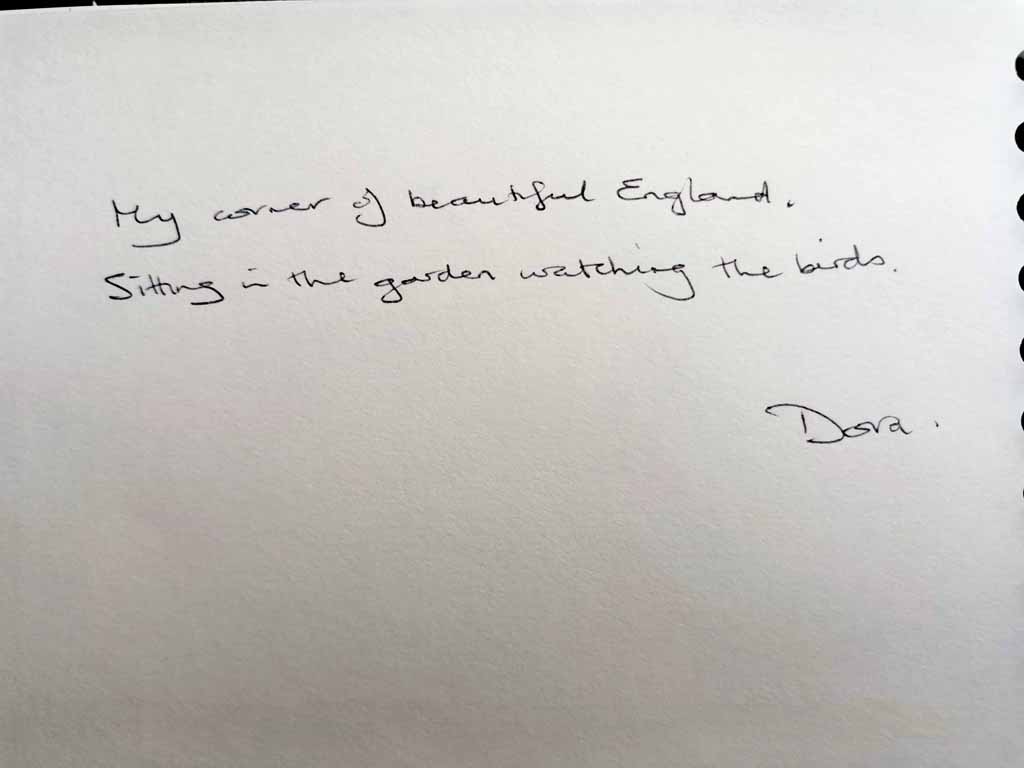 My corner of beautiful England.
Sitting in the garden watching the birds.
Dora.